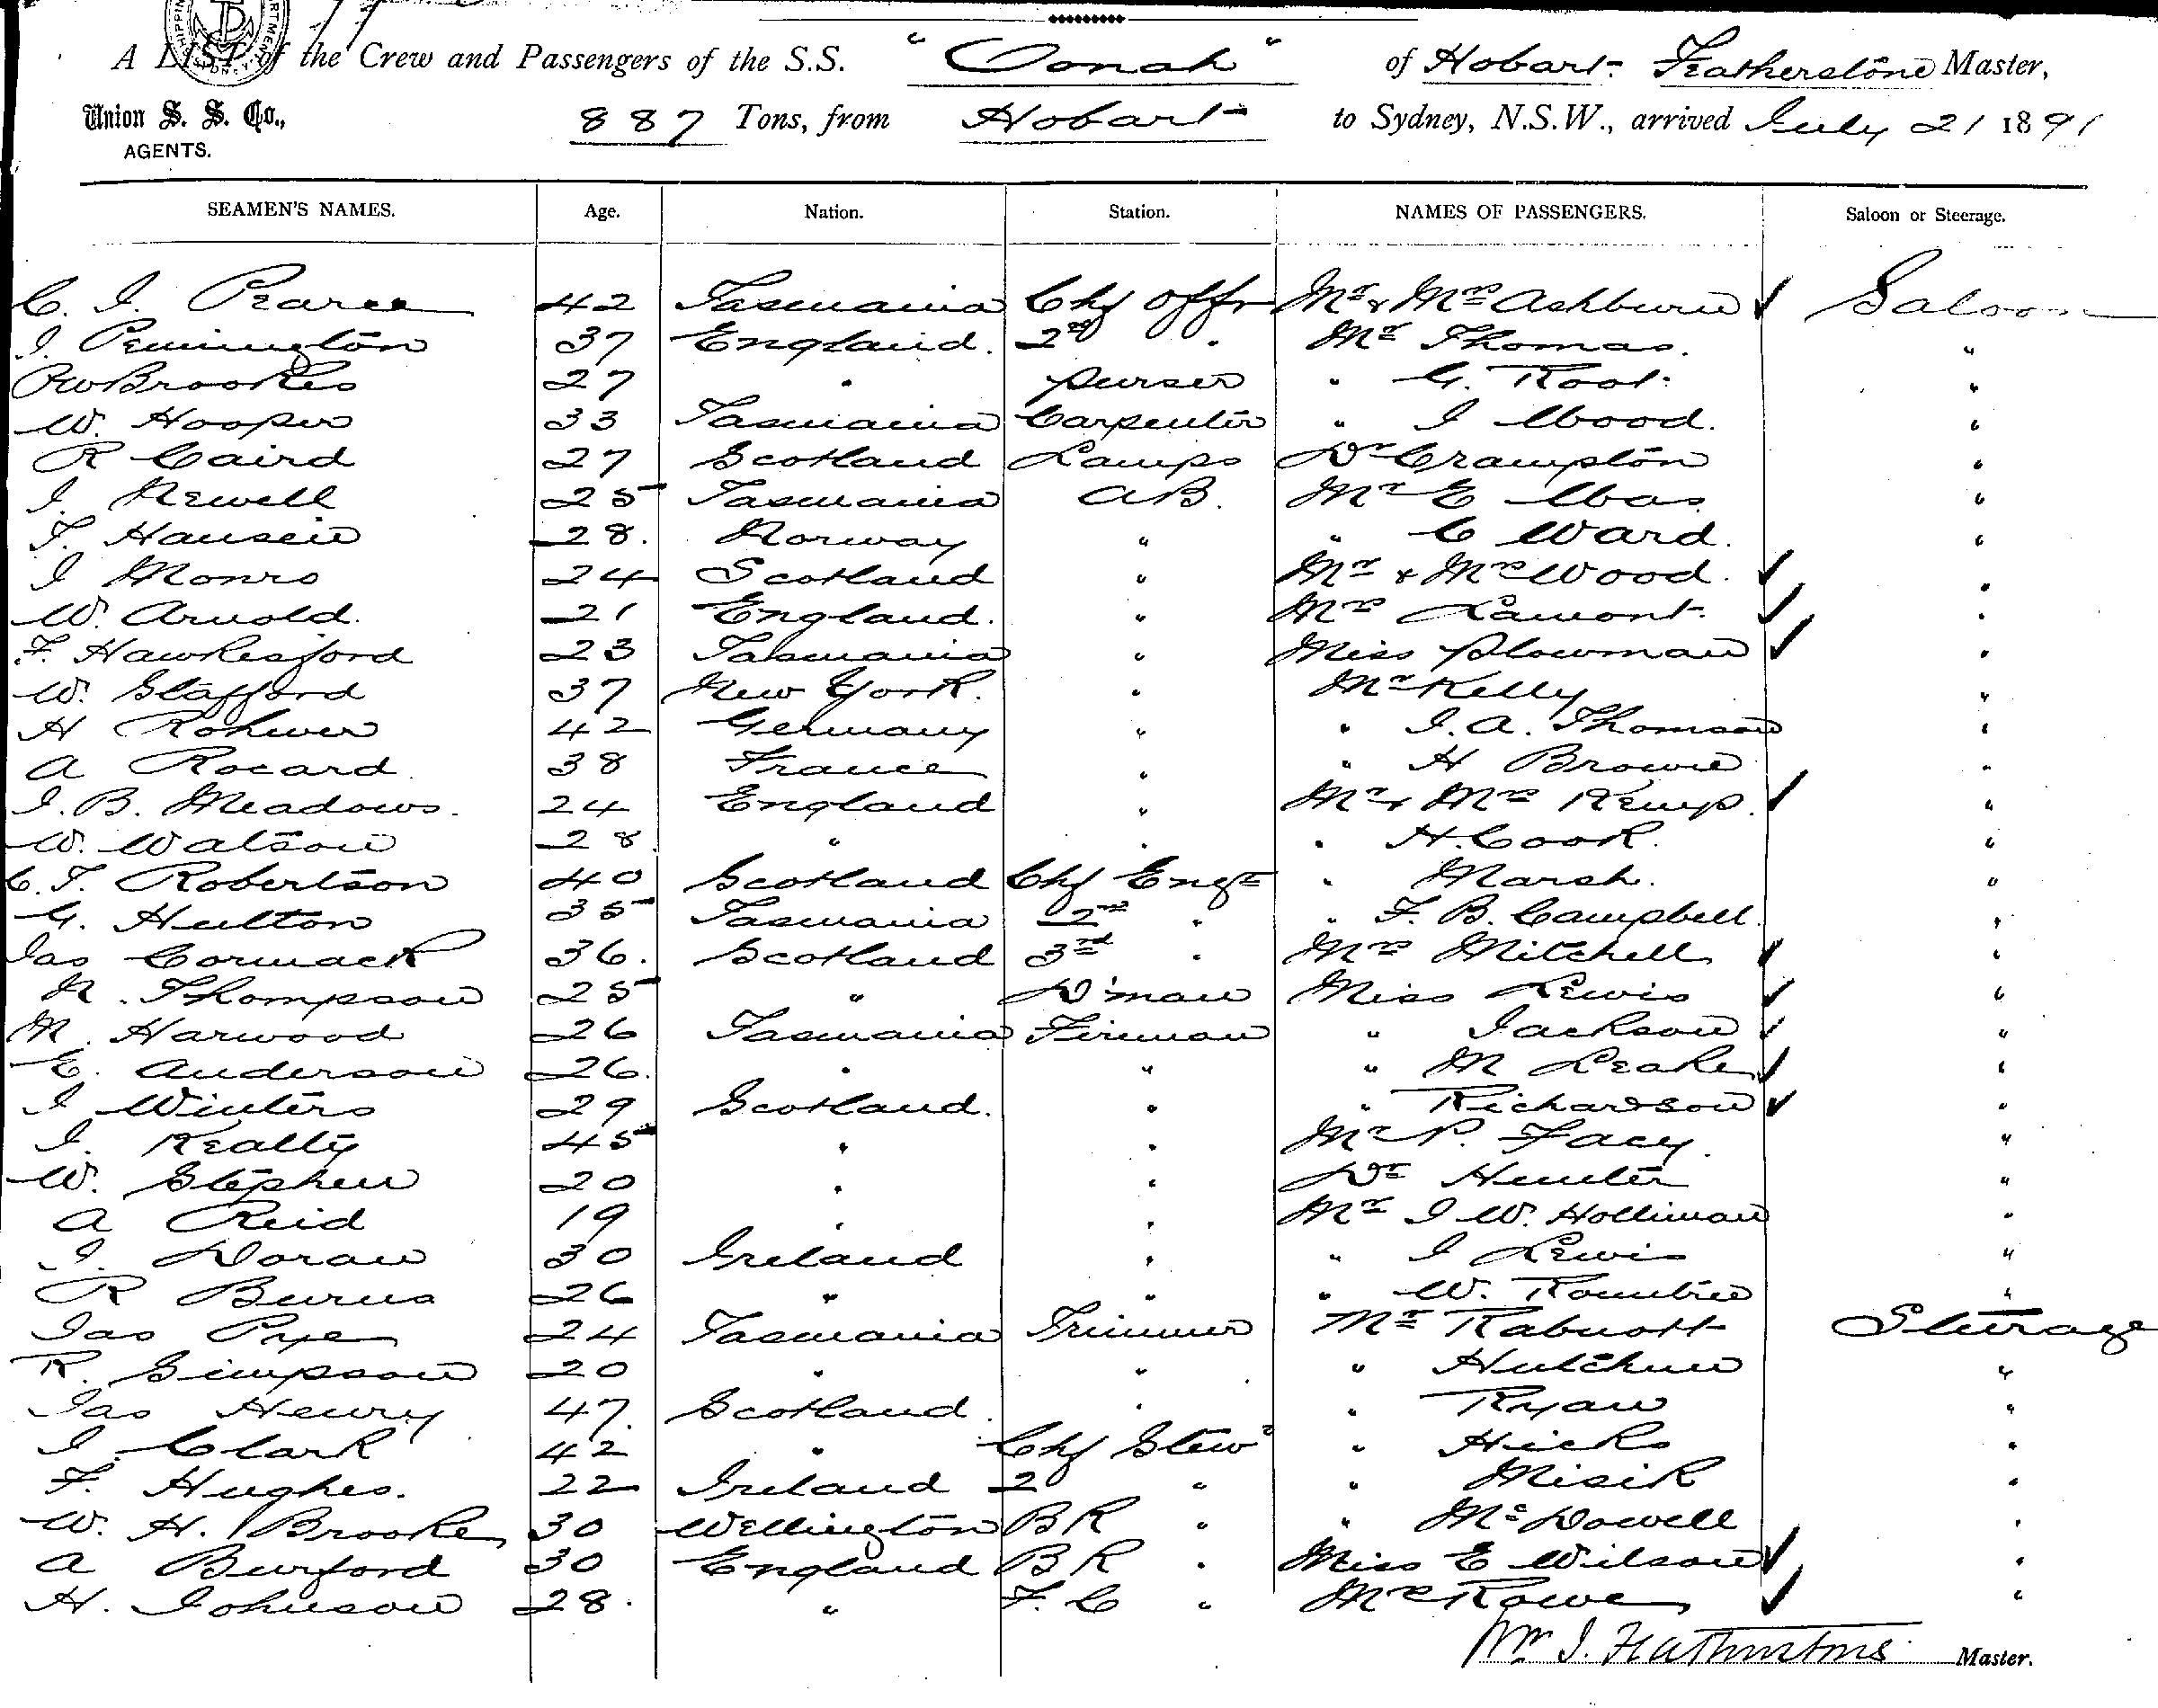 A LIST of the Crew and Passengers of the S.S. "Oonah" of Hobart Featherstone Master,
Union S. S. Co., 887 Tons, from Hobart to Sydney, N.S.W., arrived July 21 1891
AGENTS.
SEAMEN'S NAMES. Age. Nation. Station. NAMES OF PASSENGERS. Saloon or Steerage.
C. J. Pearce 42 Tasmania Chf Offr Mr & Mrs Ashburn ✓ Saloon
J. Pennington 37 England. 2nd " Mr Thomas. "
P W Brookes 27 " Purser " G. Root. "
W. Hooper 33 Tasmania Carpenter " J Wood. "
R Caird 27 Scotland Lamps Dr Crampton "
J. Newell 25 Tasmania AB. Mr E "
F. Hansen 28. Norway " " C Ward. "
J Monro 24 Scotland " Mr & Mrs Wood. ✓ "
W. Arnold. 21 England. " Mrs Lamont. ✓ "
F. Hawkesford 23 Tasmania " Miss Plowman ✓ "
W. Stafford 37 New York. " Mr Kelly "
H Rohwer 42 Germany " " J. A. Thomson "
A Rocard 38 France " " H Brown "
J. B. Meadows. 24 England " Mr & Mrs Kemp. ✓ "
W. Watson 28 " " " H. Cook. "
C. T. Robertson 40 Scotland Chf Engr " Marsh. "
G. Hulton 35 Tasmania 2nd " " F. B. Campbell. "
Jas Cormack 36. Scotland 3rd " Mrs Mitchell ✓ "
N. Thompson 25 " D'man Miss Lewis ✓ "
M. Harwood 26 Tasmania Fireman " Jackson ✓ "
E. Anderson 26. " " " M Leake ✓ "
J Winters 29 Scotland. " " Richardson ✓ "
J. Kealty 45 " " Mr P. Facy. "
W. Stephen 20 " " Dr Hunter "
A Reid 19 " " Mr J W. Holliman "
J. Doran 30 Ireland " " J Lewis "
R Burns 26 " " " W. Rowntree "
Jas Pye 24 Tasmania Trimmer Mr Rabnott Steerage
R. Simpson 20 " " " Hutchin "
Jas Henry 47. Scotland. " " Ryan "
J. Clark 42 " Chf Stewd " Hicks "
F. Hughes. 22 Ireland 2 " " Misik "
W. H. Brooke 30 Wellington BR " " McDowell "
A Burford 30 England BR " Miss E Wilson ✓ "
H. Johnson 28. " F. C " Mrs Rowe ✓ "
Wm J. Featherstone Master.